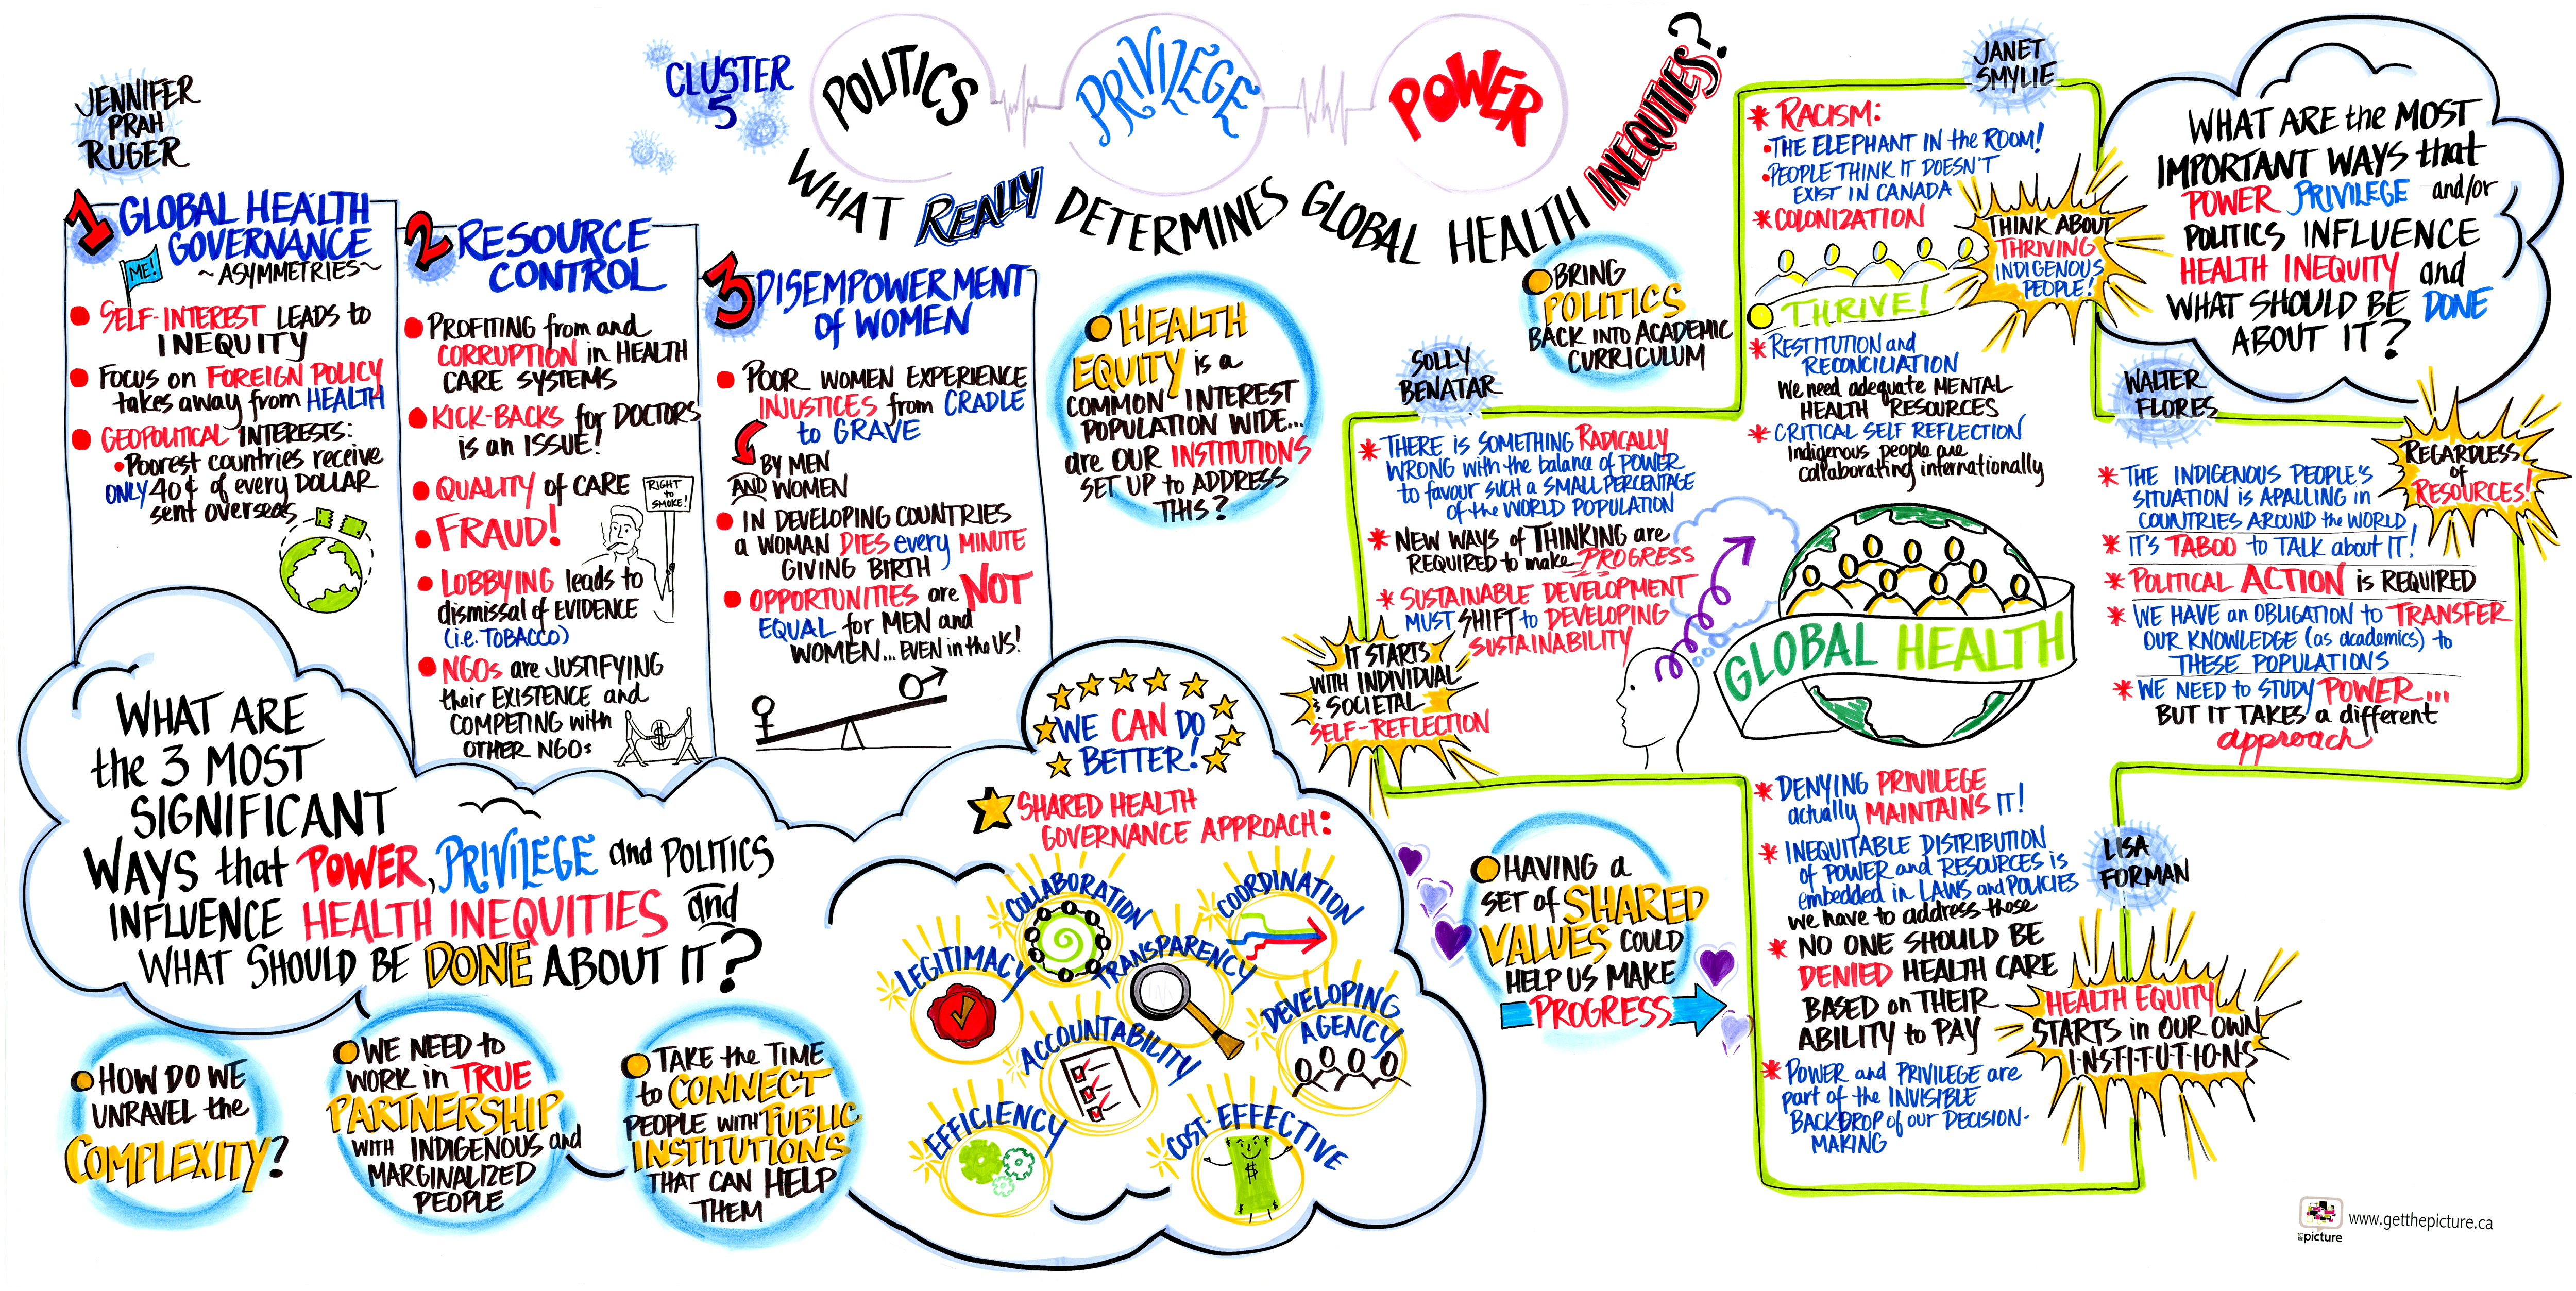 CLUSTER
5
POLITICS
PRIVILEGE
POWER
WHAT REALLY DETERMINES GLOBAL HEALTH INEQUITIES?
JENNIFER
PRAH
RUGER
1 GLOBAL HEALTH
GOVERNANCE
~ASYMMETRIES~
ME!
SELF-INTEREST LEADS to
INEQUITY
FOCUS on FOREIGN POLICY
takes away from HEALTH
GEOPOLITICAL INTERESTS:
•Poorest countries receive
ONLY 40¢ of every DOLLAR
sent overseas
2 RESOURCE
CONTROL
PROFITING from and
CORRUPTION in HEALTH
CARE SYSTEMS
KICK-BACKS for DOCTORS
is an ISSUE!
QUALITY of CARE
FRAUD!
RIGHT
to
SMOKE!
LOBBYING leads to
dismissal of EVIDENCE
(i.e. TOBACCO)
NGOs are JUSTIFYING
their EXISTENCE and
COMPETING with
OTHER NGOs
$
3 DISEMPOWERMENT
of WOMEN
POOR WOMEN EXPERIENCE
INJUSTICES from CRADLE
to GRAVE
BY MEN
AND WOMEN
IN DEVELOPING COUNTRIES
a WOMAN DIES every MINUTE
GIVING BIRTH
OPPORTUNITIES are NOT
EQUAL for MEN and
WOMEN... EVEN in the US!
WHAT ARE
the 3 MOST
SIGNIFICANT
WAYS that POWER, PRIVILEGE and POLITICS
INFLUENCE HEALTH INEQUITIES and
WHAT SHOULD BE DONE ABOUT IT?
HOW DO WE
UNRAVEL the
COMPLEXITY?
WE NEED to
WORK in TRUE
PARTNERSHIP
WITH INDIGENOUS and
MARGINALIZED
PEOPLE
TAKE the TIME
to CONNECT
PEOPLE WITH PUBLIC
INSTITUTIONS
THAT CAN HELP
THEM
WE CAN DO
BETTER!
SHARED HEALTH
GOVERNANCE APPROACH:
COLLABORATION
COORDINATION
LEGITIMACY
TRANSPARENCY
DEVELOPING
AGENCY
ACCOUNTABILITY
EFFICIENCY
COST-EFFECTIVE
$
HEALTH
EQUITY is a
COMMON INTEREST
POPULATION WIDE...
are OUR INSTITUTIONS
SET UP to ADDRESS
THIS?
BRING
POLITICS
BACK INTO ACADEMIC
CURRICULUM
SOLLY
BENATAR
THERE IS SOMETHING RADICALLY
WRONG with the balance of POWER
to favour SUCH a SMALL PERCENTAGE
of the WORLD POPULATION
NEW WAYS of THINKING are
REQUIRED to make PROGRESS
SUSTAINABLE DEVELOPMENT
MUST SHIFT to DEVELOPING
SUSTAINABILITY
IT STARTS
WITH INDIVIDUAL
& SOCIETAL
SELF-REFLECTION
HAVING a
SET of SHARED
VALUES COULD
HELP US MAKE
PROGRESS
JANET
SMYLIE
RACISM:
•THE ELEPHANT IN the ROOM!
•PEOPLE THINK IT DOESN'T
EXIST IN CANADA
COLONIZATION
THINK ABOUT
THRIVING
INDIGENOUS
PEOPLE!
THRIVE!
RESTITUTION and
RECONCILIATION
We need adequate MENTAL
HEALTH RESOURCES
CRITICAL SELF REFLECTION
Indigenous people are
collaborating internationally
GLOBAL HEALTH
WHAT ARE the MOST
IMPORTANT WAYS that
POWER PRIVILEGE and/or
POLITICS INFLUENCE
HEALTH INEQUITY and
WHAT SHOULD BE DONE
ABOUT IT?
WALTER
FLORES
REGARDLESS
of
RESOURCES!
THE INDIGENOUS PEOPLE'S
SITUATION IS APALLING in
COUNTRIES AROUND the WORLD
IT'S TABOO to TALK about IT!
POLITICAL ACTION is REQUIRED
WE HAVE an OBLIGATION to TRANSFER
OUR KNOWLEDGE (as academics) to
THESE POPULATIONS
WE NEED to STUDY POWER...
BUT IT TAKES a different
approach
LISA
FORMAN
DENYING PRIVILEGE
actually MAINTAINS IT!
INEQUITABLE DISTRIBUTION
of POWER and RESOURCES is
embedded in LAWS and POLICIES
we have to address those
NO ONE SHOULD BE
DENIED HEALTH CARE
BASED on THEIR
ABILITY to PAY
POWER and PRIVILEGE are
part of the INVISIBLE
BACKDROP of our DECISION-
MAKING
HEALTH EQUITY
STARTS in OUR OWN
I-N-S-T-I-T-U-T-I-O-N-S
picture
www.getthepicture.ca